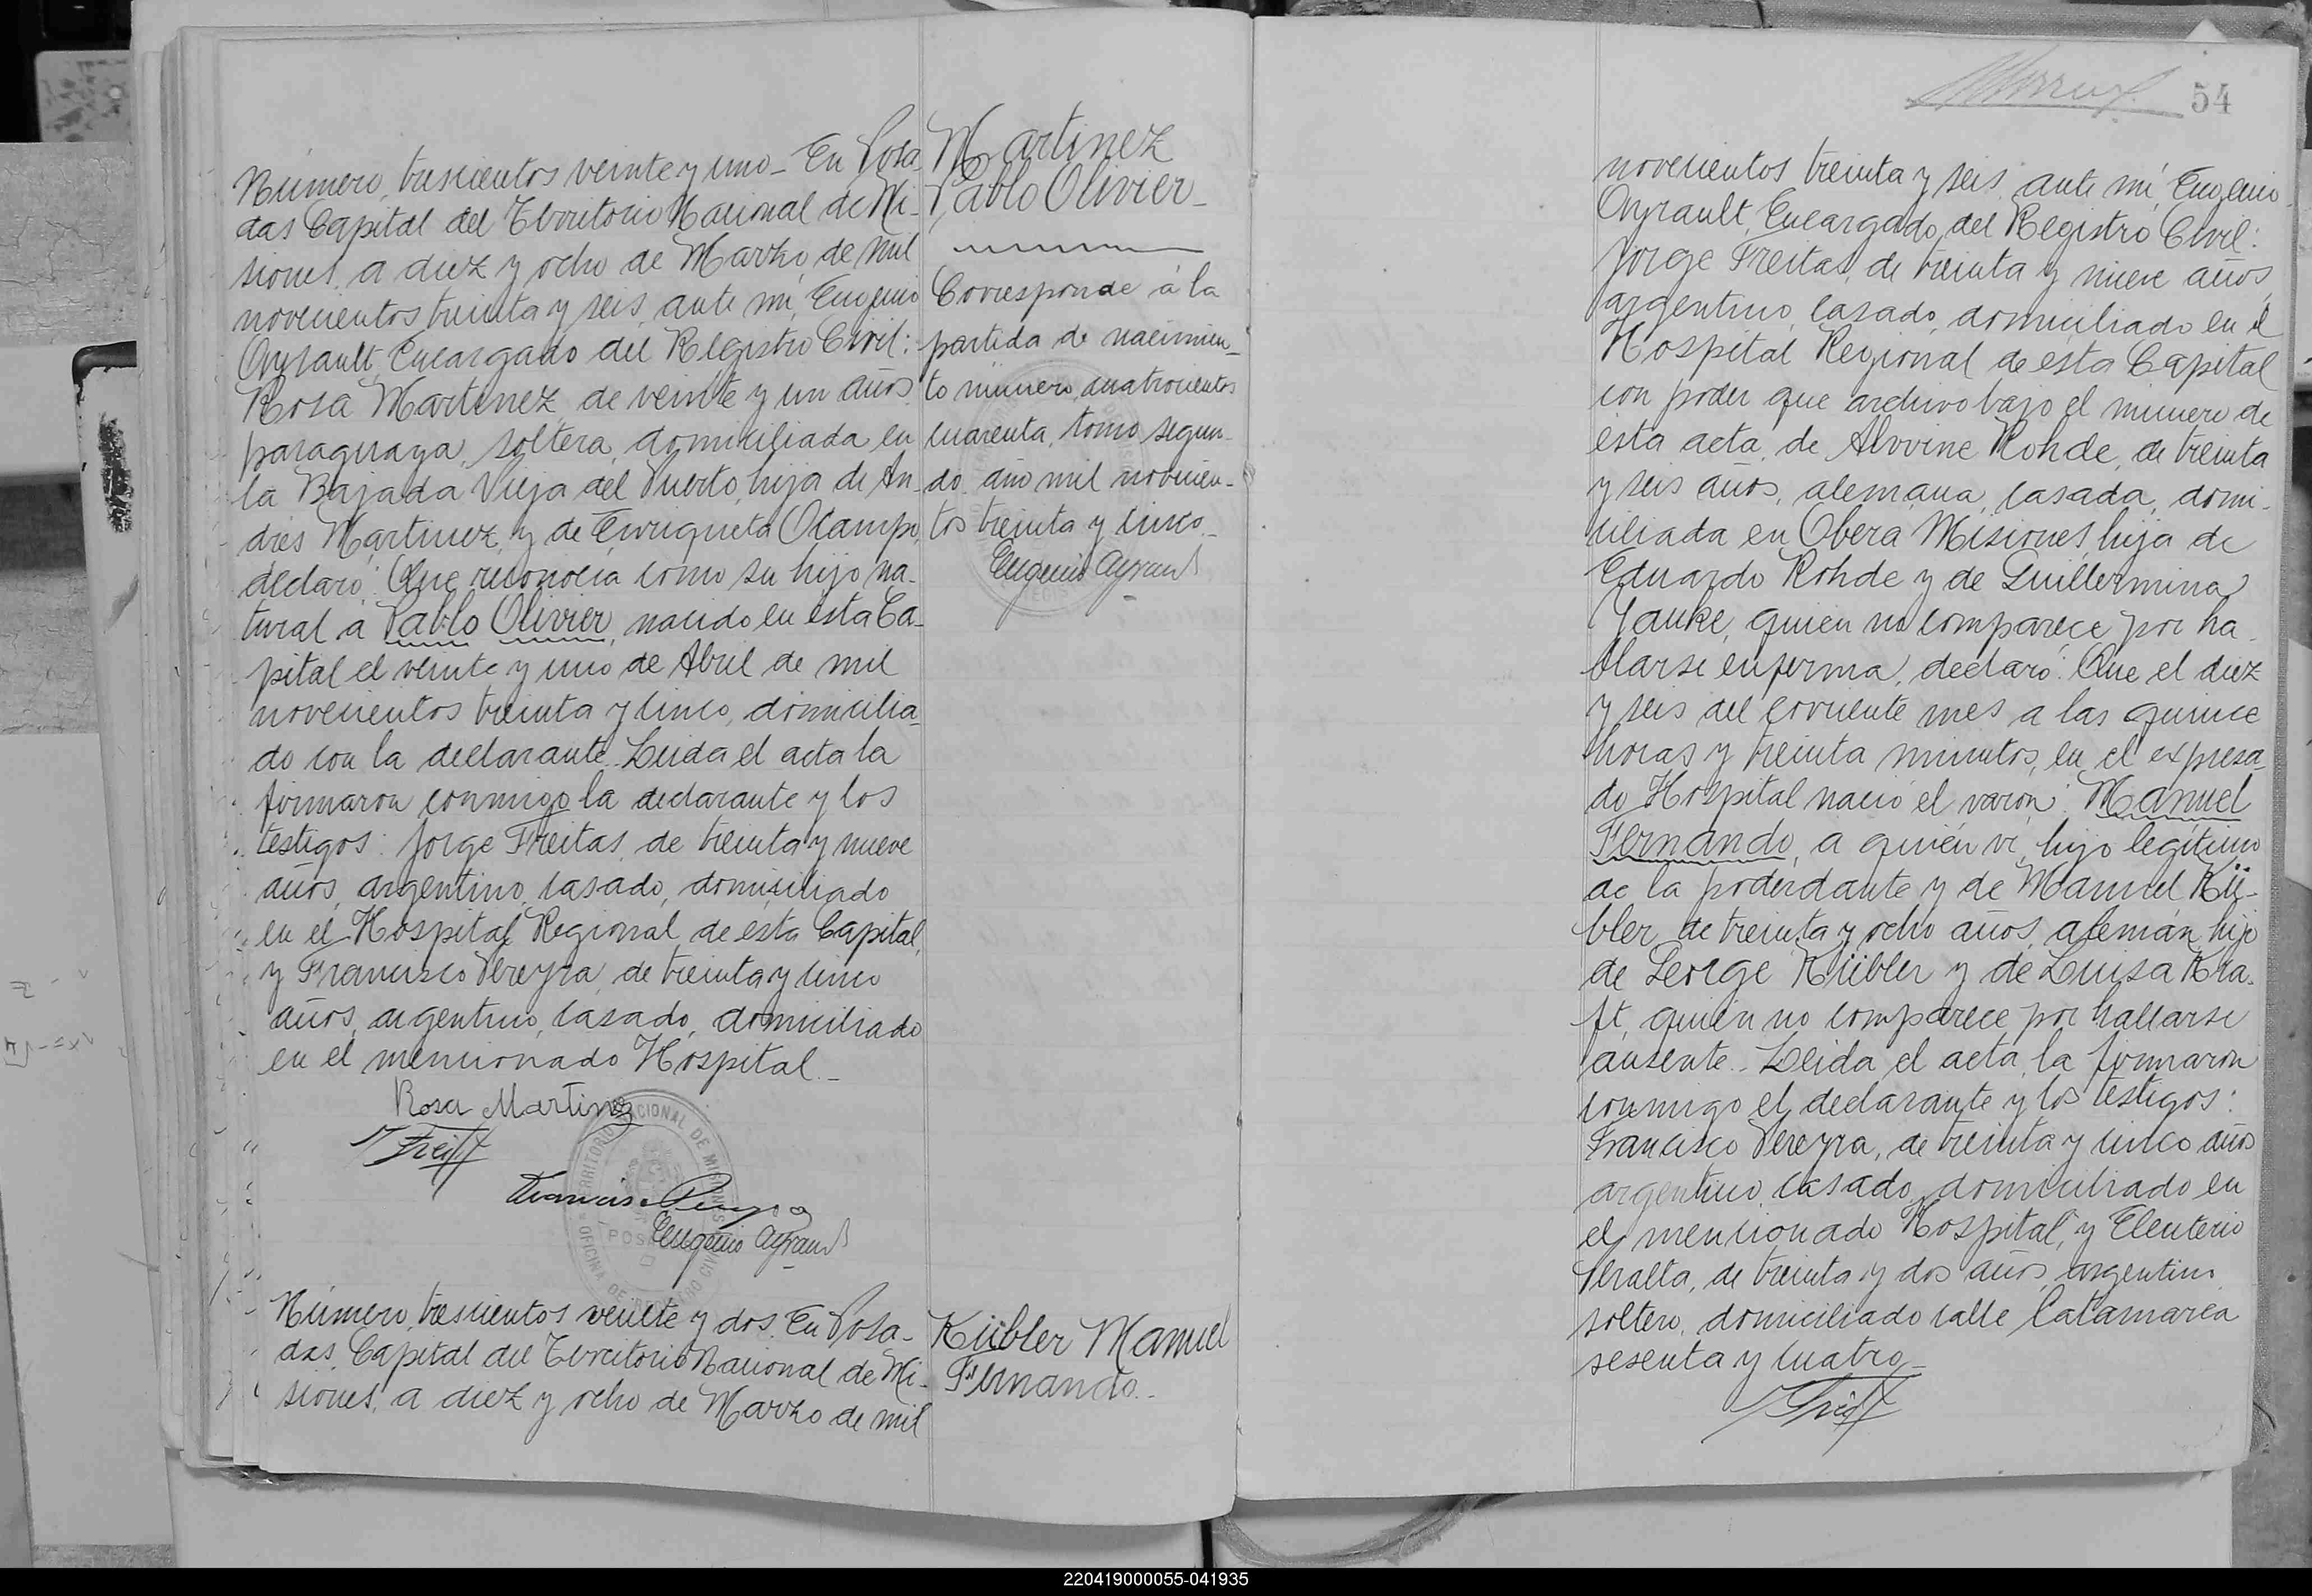 Número trescientos veinte y uno_ En Posa-
das Capital del Territorio Nacional de Mi-
siones, a diez y ocho de Marzo de mil
novecientos treinta y seis, ante mí, Eugenio
Ayrault, Encargado del Registro Civil:
Rosa Martinez, de veinte y un años,
paraguaya, soltera, domiciliada en
la Bajada Vieja del Puerto, hija de An-
drés Martinez, y de Enriqueta Ocampo,
declaró: Que reconocía como su hijo na-
tural a Pablo Olivier, nacido en esta Ca-
pital el veinte y uno de Abril de mil
novecientos treinta y cinco, domicilia-
do con la declarante. Leida el acta la
firmaron conmigo la declarante y los
testigos: Jorge Freitas, de treinta y nueve
años, argentino, casado, domiciliado
en el Hospital Regional de esta Capital,
y Francisco Pereyra, de treinta y cinco
años, argentino, casado, domiciliado
en el mencionado Hospital._
Rosa Martinez
Francisco Pereyra
Eugenio Ayrault
Martinez
Pablo Olivier_
Corresponde á la
partida de nacimien-
to número cuatrocientos
cuarenta, tomo segun-
do, año mil novecien-
tos treinta y cinco._
Eugenio Ayrault
TERRITORIO NACIONAL DE MISIONES
OFICINA DE REGISTRO CIVIL
Número trescientos veinte y dos. En Posa-
das, Capital del Territorio Nacional de Mi-
siones, a diez y ocho de Marzo de mil
Kübler Manuel
Fernando._
54
novecientos treinta y seis, ante mí, Eugenio
Ayrault, Encargado del Registro Civil:
Jorge Freitas, de treinta y nueve años,
argentino, casado, domiciliado en el
Hospital Regional de esta Capital
con poder que archivo bajo el número de
esta acta, de Alwine Rohde, de treinta
y seis años, alemana, casada, domi-
ciliada en Oberá Misiones, hija de
Eduardo Rohde y de Guillermina
Janke, quien no comparece por ha-
llarse enferma, declaró: Que el diez
y seis del corriente mes a las quince
horas y treinta minutos, en el expresa-
do Hospital nació el varón: Manuel
Fernando, a quién ví, hijo legítimo
de la poderdante y de Manuel Kü-
bler, de treinta y ocho años, alemán, hijo
de George Kübler y de Luisa Kra-
ft, quién no comparece por hallarse
ausente._ Leida el acta, la firmaron
conmigo el declarante y los testigos:
Francisco Pereyra, de treinta y cinco años
argentino, casado, domiciliado en
el mencionado Hospital, y Eleuterio
Peralta, de treinta y dos años, argentino
soltero, domiciliado calle Catamarca
sesenta y cuatro_
220419000055-041935